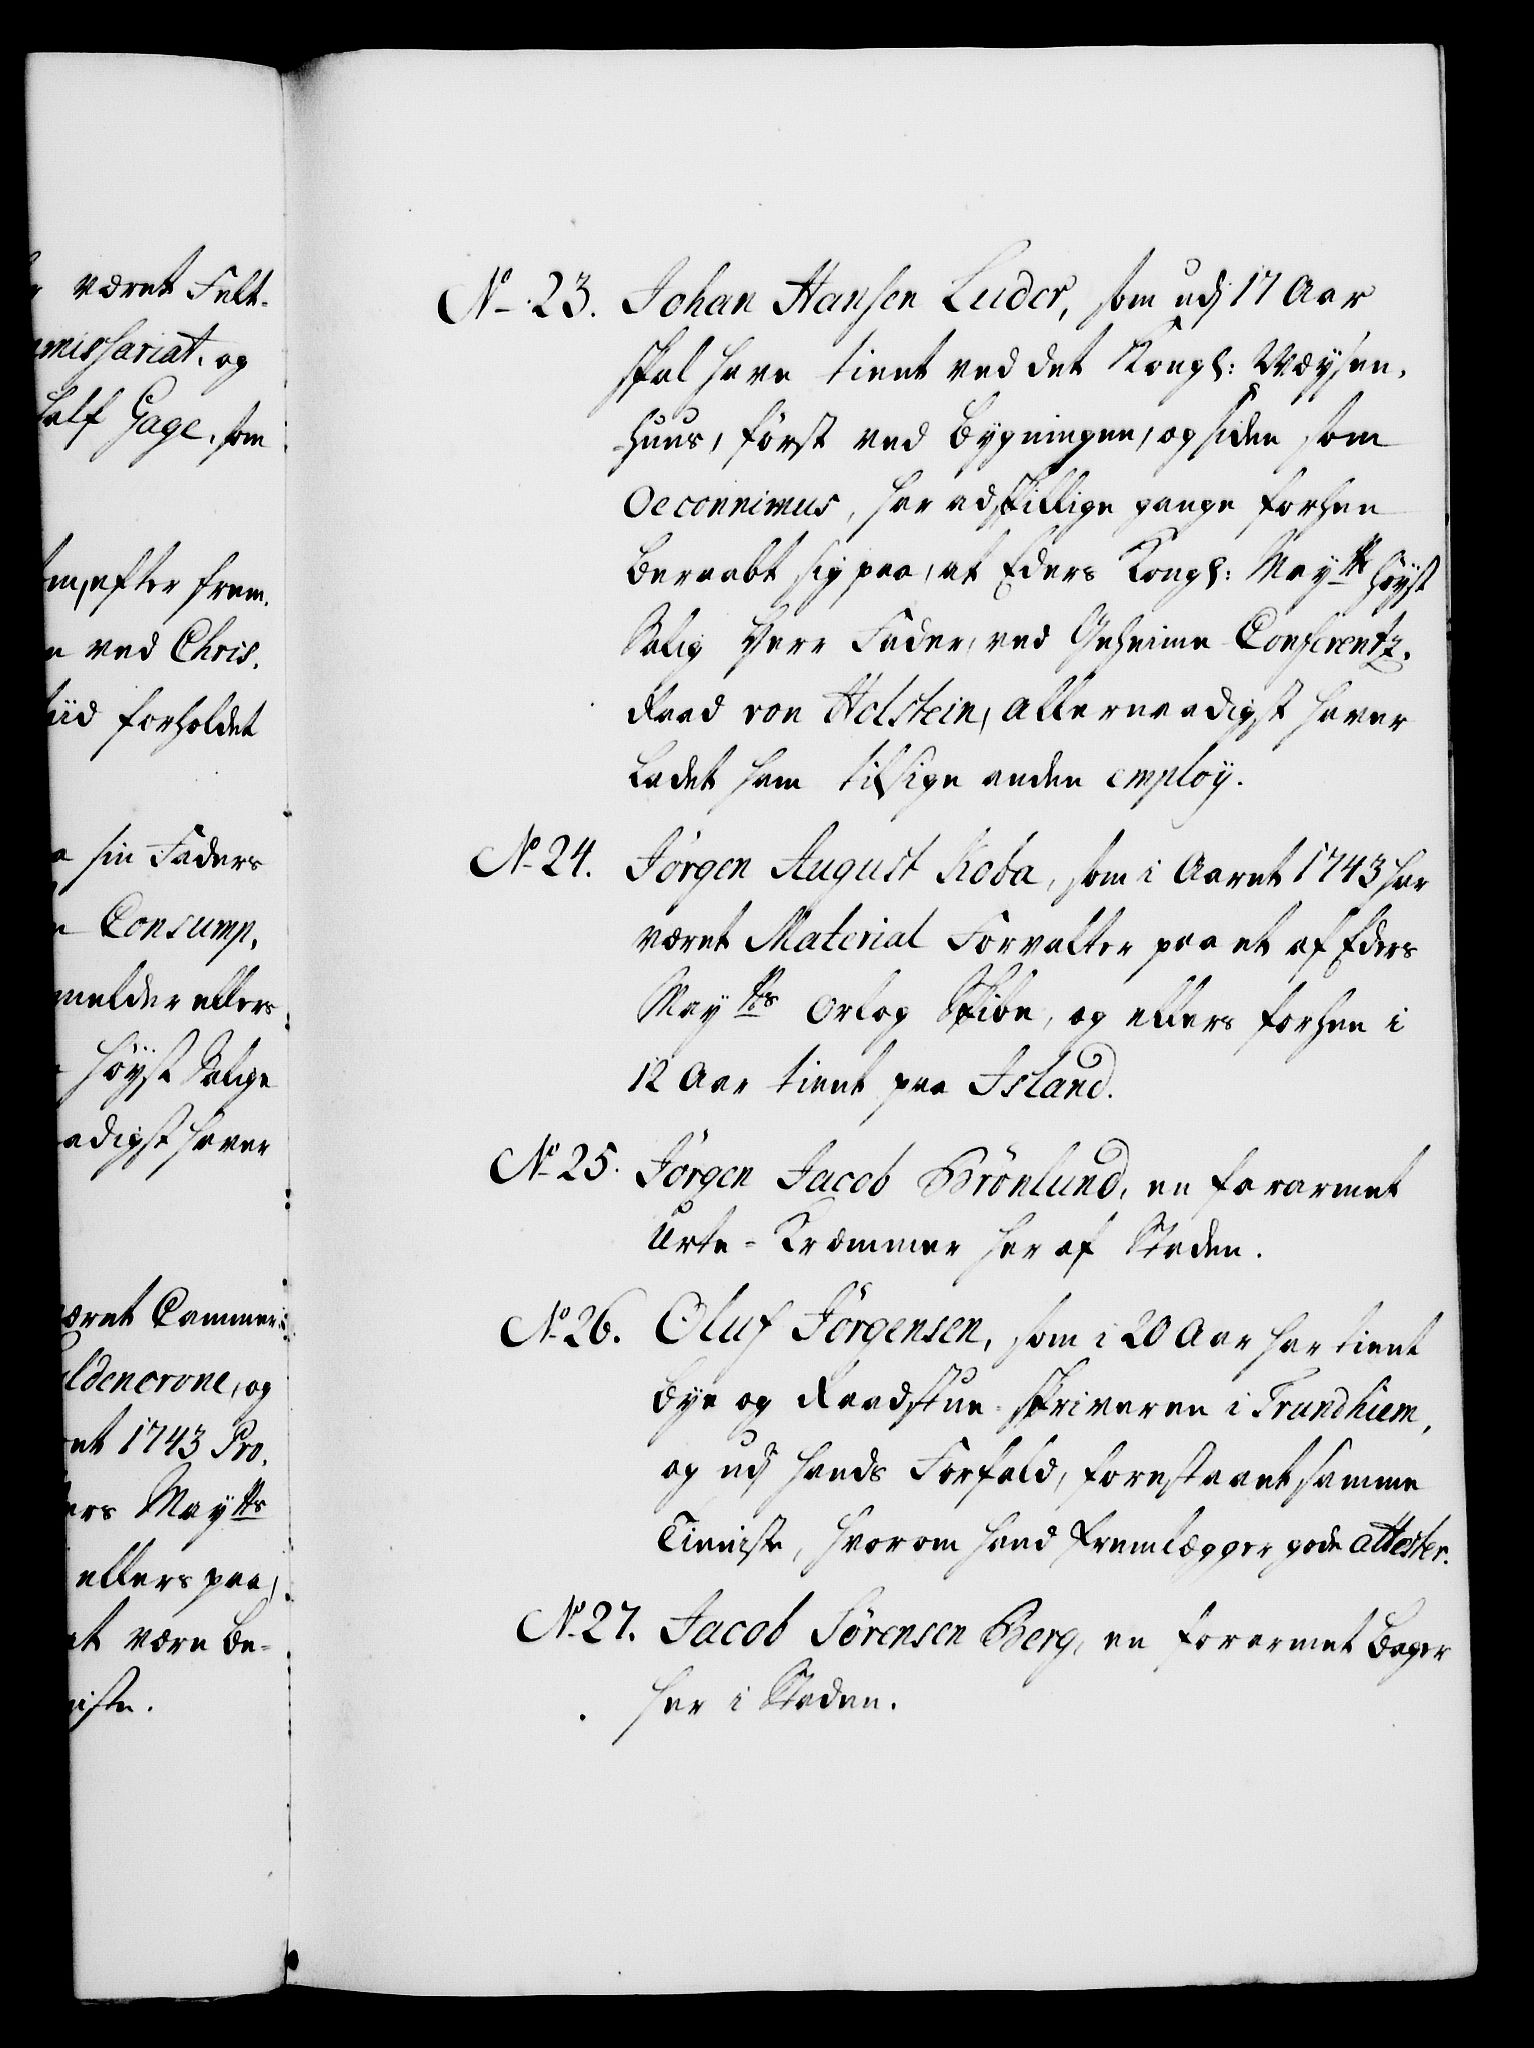 været Felt-
missariat, og
half Gage, som
efter frem-
ved Chris-
tiid forholdet
sin Faders
Consump-
melder ellers
Høyst Salige
adigst haver
været Cammer-
ldencrone, og
et 1743 Pro-
ers Mayts
ellers paa,
at være be-
niste.
No 23. Johan Hansen Luder, som udj 17 Aar
skal have tient ved det Kongl: Wæysen-
huus, først ved bygningen, og siden som
Oeconnimus, har adskillige gange forhen
beraabt sig paa, at Eders Kongl: Mayts Høyst
Salig Herr Fader, ved Geheime Conferentz-
Raad von Holstein, allernaadigst haver
ladet ham tilsige anden employ.
No 24. Jørgen August Koba, som i Aaret 1743 har
været Material Forvalter paa et af Eders
Mayts Orlog Skibe, og ellers forhen i
12 Aar tient paa Island.
No 25. Jørgen Jacob Brönlund, en forarmet
Urte-Kræmmer her af Staden.
No 26. Oluf Jørgensen, som i 20 Aar har tient
Bye og Raadstue-skriveren i Trundhiem,
og udj hands Forfald, forestaaet samme
Tieniste, hvorom hand fremlægger gode attester.
No 27. Jacob Sørensen Berg, en forarmet bager
her i Staden.